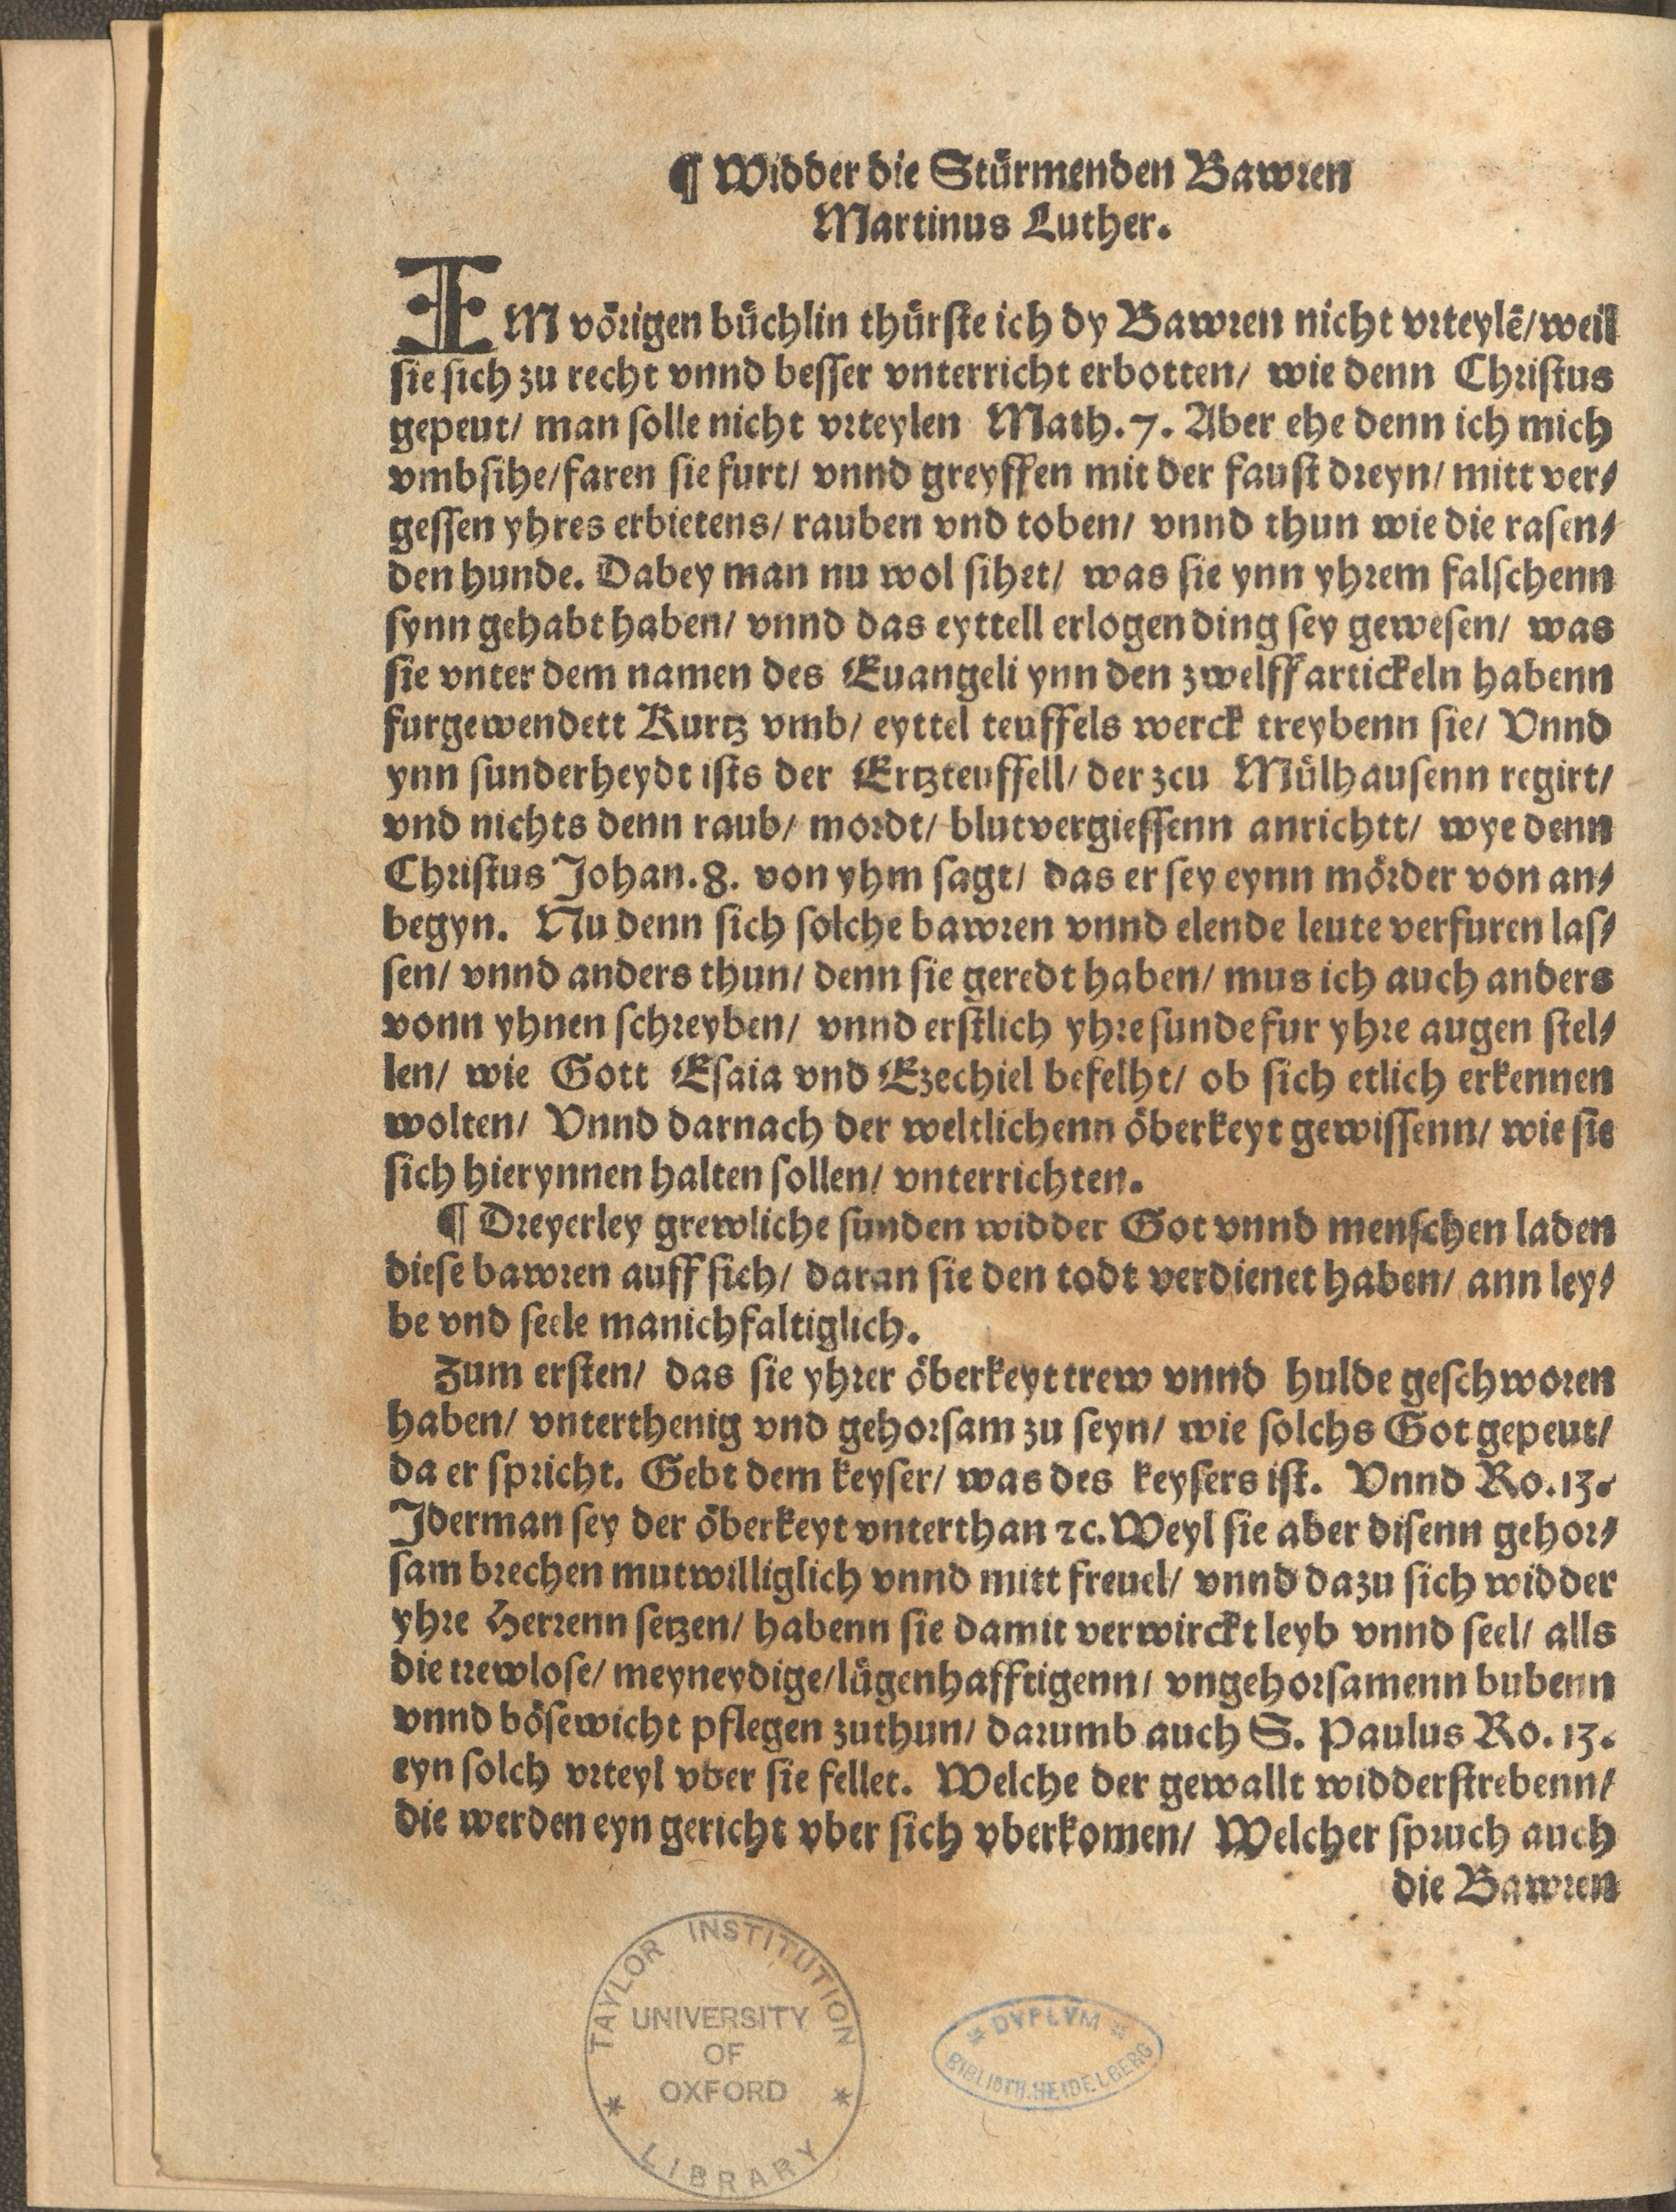 ¶ Widder die Stürmenden Bawren
Martinus Luther.
IM vörigen büchlin thürste ich dy Bawren nicht vrteylē/ weil
sie sich zu recht vnnd besser vnterricht erbotten/ wie denn Christus
gepeut/ man solle nicht vrteylen Math. 7. Aber ehe denn ich mich
vmbsihe/ faren sie furt/ vnnd greyffen mit der faust dreyn/ mitt ver⸗
gessen yhres erbietens/ rauben vnd toben/ vnnd thun wie die rasen⸗
den hunde. Dabey man nu wol sihet/ was sie ynn yhrem falschenn
synn gehabt haben/ vnnd das eyttell erlogen ding sey gewesen/ was
sie vnter dem namen des Euangeli ynn den zwelff artickeln habenn
furgewendett Kurtz vmb/ eyttel teuffels werck treybenn sie/ Vnnd
ynn sunderheydt ists der Ertzteuffell/ der zcu Mülhausenn regirt/
vnd nichts denn raub/ mordt/ blutvergiessenn anrichtt/ wye denn
Christus Johan. 8. von yhm sagt/ das er sey eynn mörder von an⸗
begyn. Nu denn sich solche bawren vnnd elende leute verfuren las⸗
sen/ vnnd anders thun/ denn sie geredt haben/ mus ich auch anders
vonn yhnen schreyben/ vnnd erstlich yhre sunde fur yhre augen stel⸗
len/ wie Gott Esaia vnd Ezechiel befelht/ ob sich etlich erkennen
wolten/ Vnnd darnach der weltlichenn öberkeyt gewissenn/ wie sie
sich hierynnen halten sollen/ vnterrichten.
¶ Dreyerley grewliche sunden widder Got vnnd menschen laden
diese bawren auff sich/ daran sie den todt verdienet haben/ ann ley⸗
be vnd seele manichfaltiglich.
Zum ersten/ das sie yhrer öberkeyt trew vnnd hulde geschworen
haben/ vnterthenig vnd gehorsam zu seyn/ wie solchs Got gepeut/
da er spricht. Gebt dem keyser/ was des keysers ist. Vnnd Ro. 13.
Jderman sey der öberkeyt vnterthan ꝛc. Weyl sie aber disenn gehor⸗
sam brechen mutwilliglich vnnd mitt freuel/ vnnd dazu sich widder
yhre Herrenn setzen/ habenn sie damit verwirckt leyb vnnd seel/ alls
die trewlose/ meyneydige/ lügenhafftigenn/ vngehorsamenn bubenn
vnnd bösewicht pflegen zuthun/ darumb auch S. Paulus Ro. 13.
eyn solch vrteyl vber sie fellet. Welche der gewallt widderstrebenn/
die werden eyn gericht vber sich vberkomen/ Welcher spruch auch
die Bawren
TAYLOR INSTITUTION
UNIVERSITY
OF
OXFORD
* LIBRARY *
* DVPLVM *
BIBLIOTH. HEIDELBERG